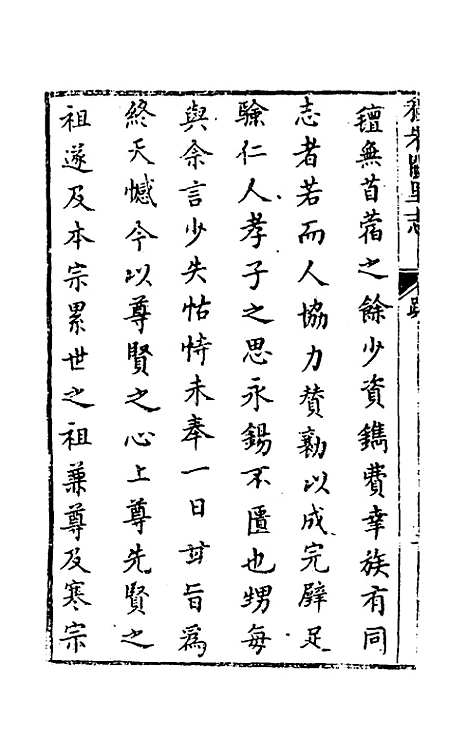 氊無苜蓿之餘少資鐫費幸族有同
志者若而人協力贊勷以成完璧足
驗仁人孝子之思永錫不匱也甥每
與余言少失怙恃未奉一日甘旨爲
終天憾今以尊賢之心上尊先賢之
祖遂及本宗累世之祖兼尊及寒宗